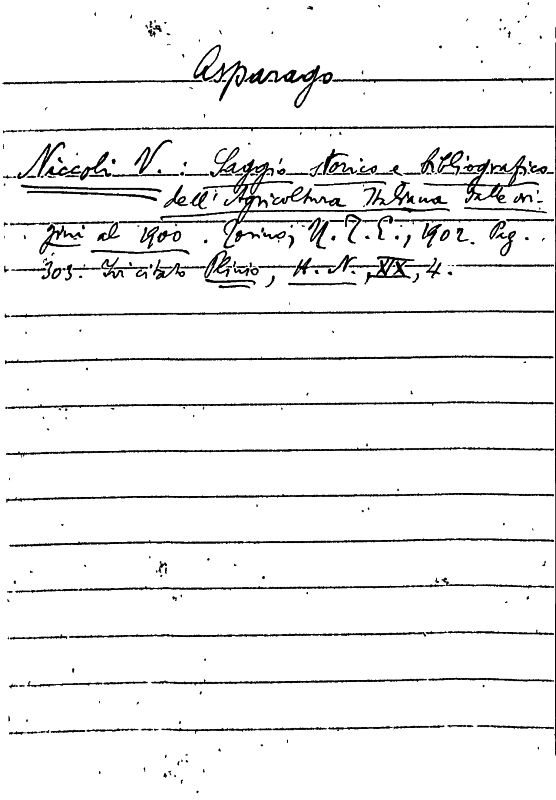 Asparago
Niccoli V.: Saggio storico e bibliografico
dell'Agricoltura Italiana dalle ori-
gini al 1900. Torino, U.T.E., 1902. Pag.
303. Ivi citato Plinio, H.N., XX, 4.